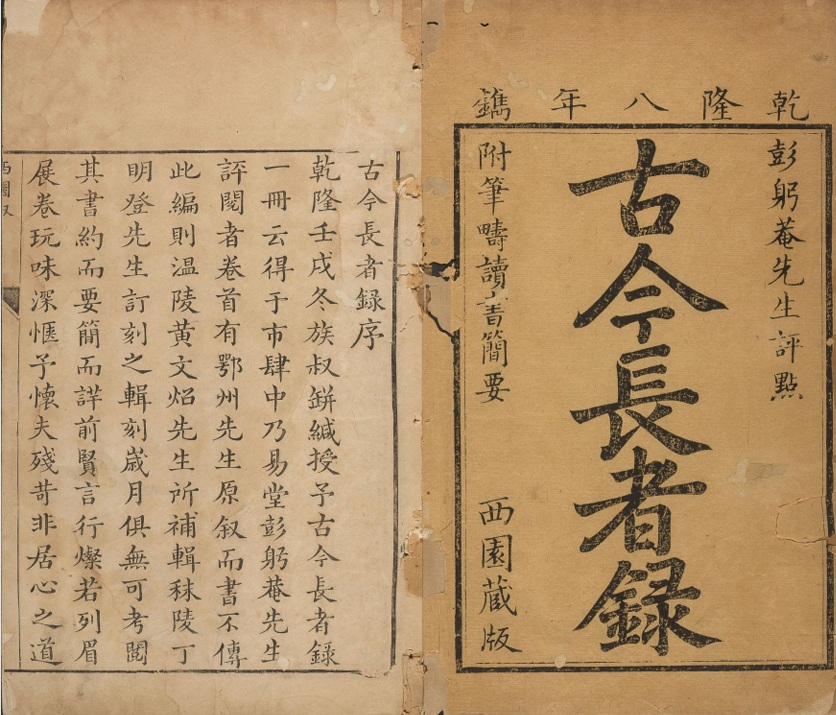 乾隆八年鐫
彭躬菴先生評點
古今長者録
附筆疇讀書簡要
西園蔵版
古今長者録序
乾隆壬戌冬族叔鉼緘授予古今長者録
一冊云得于市肆中乃易堂彭躬菴先生
評閱者卷首有鄂州先生原叙而書不傳
此編則温陵黄文炤先生所補輯秣陵丁
明登先生訂刻之輯刻歲月俱無可考閱
其書約而要簡而詳前賢言行燦若列眉
展卷玩味深愜予懷夫殘苛非居心之道